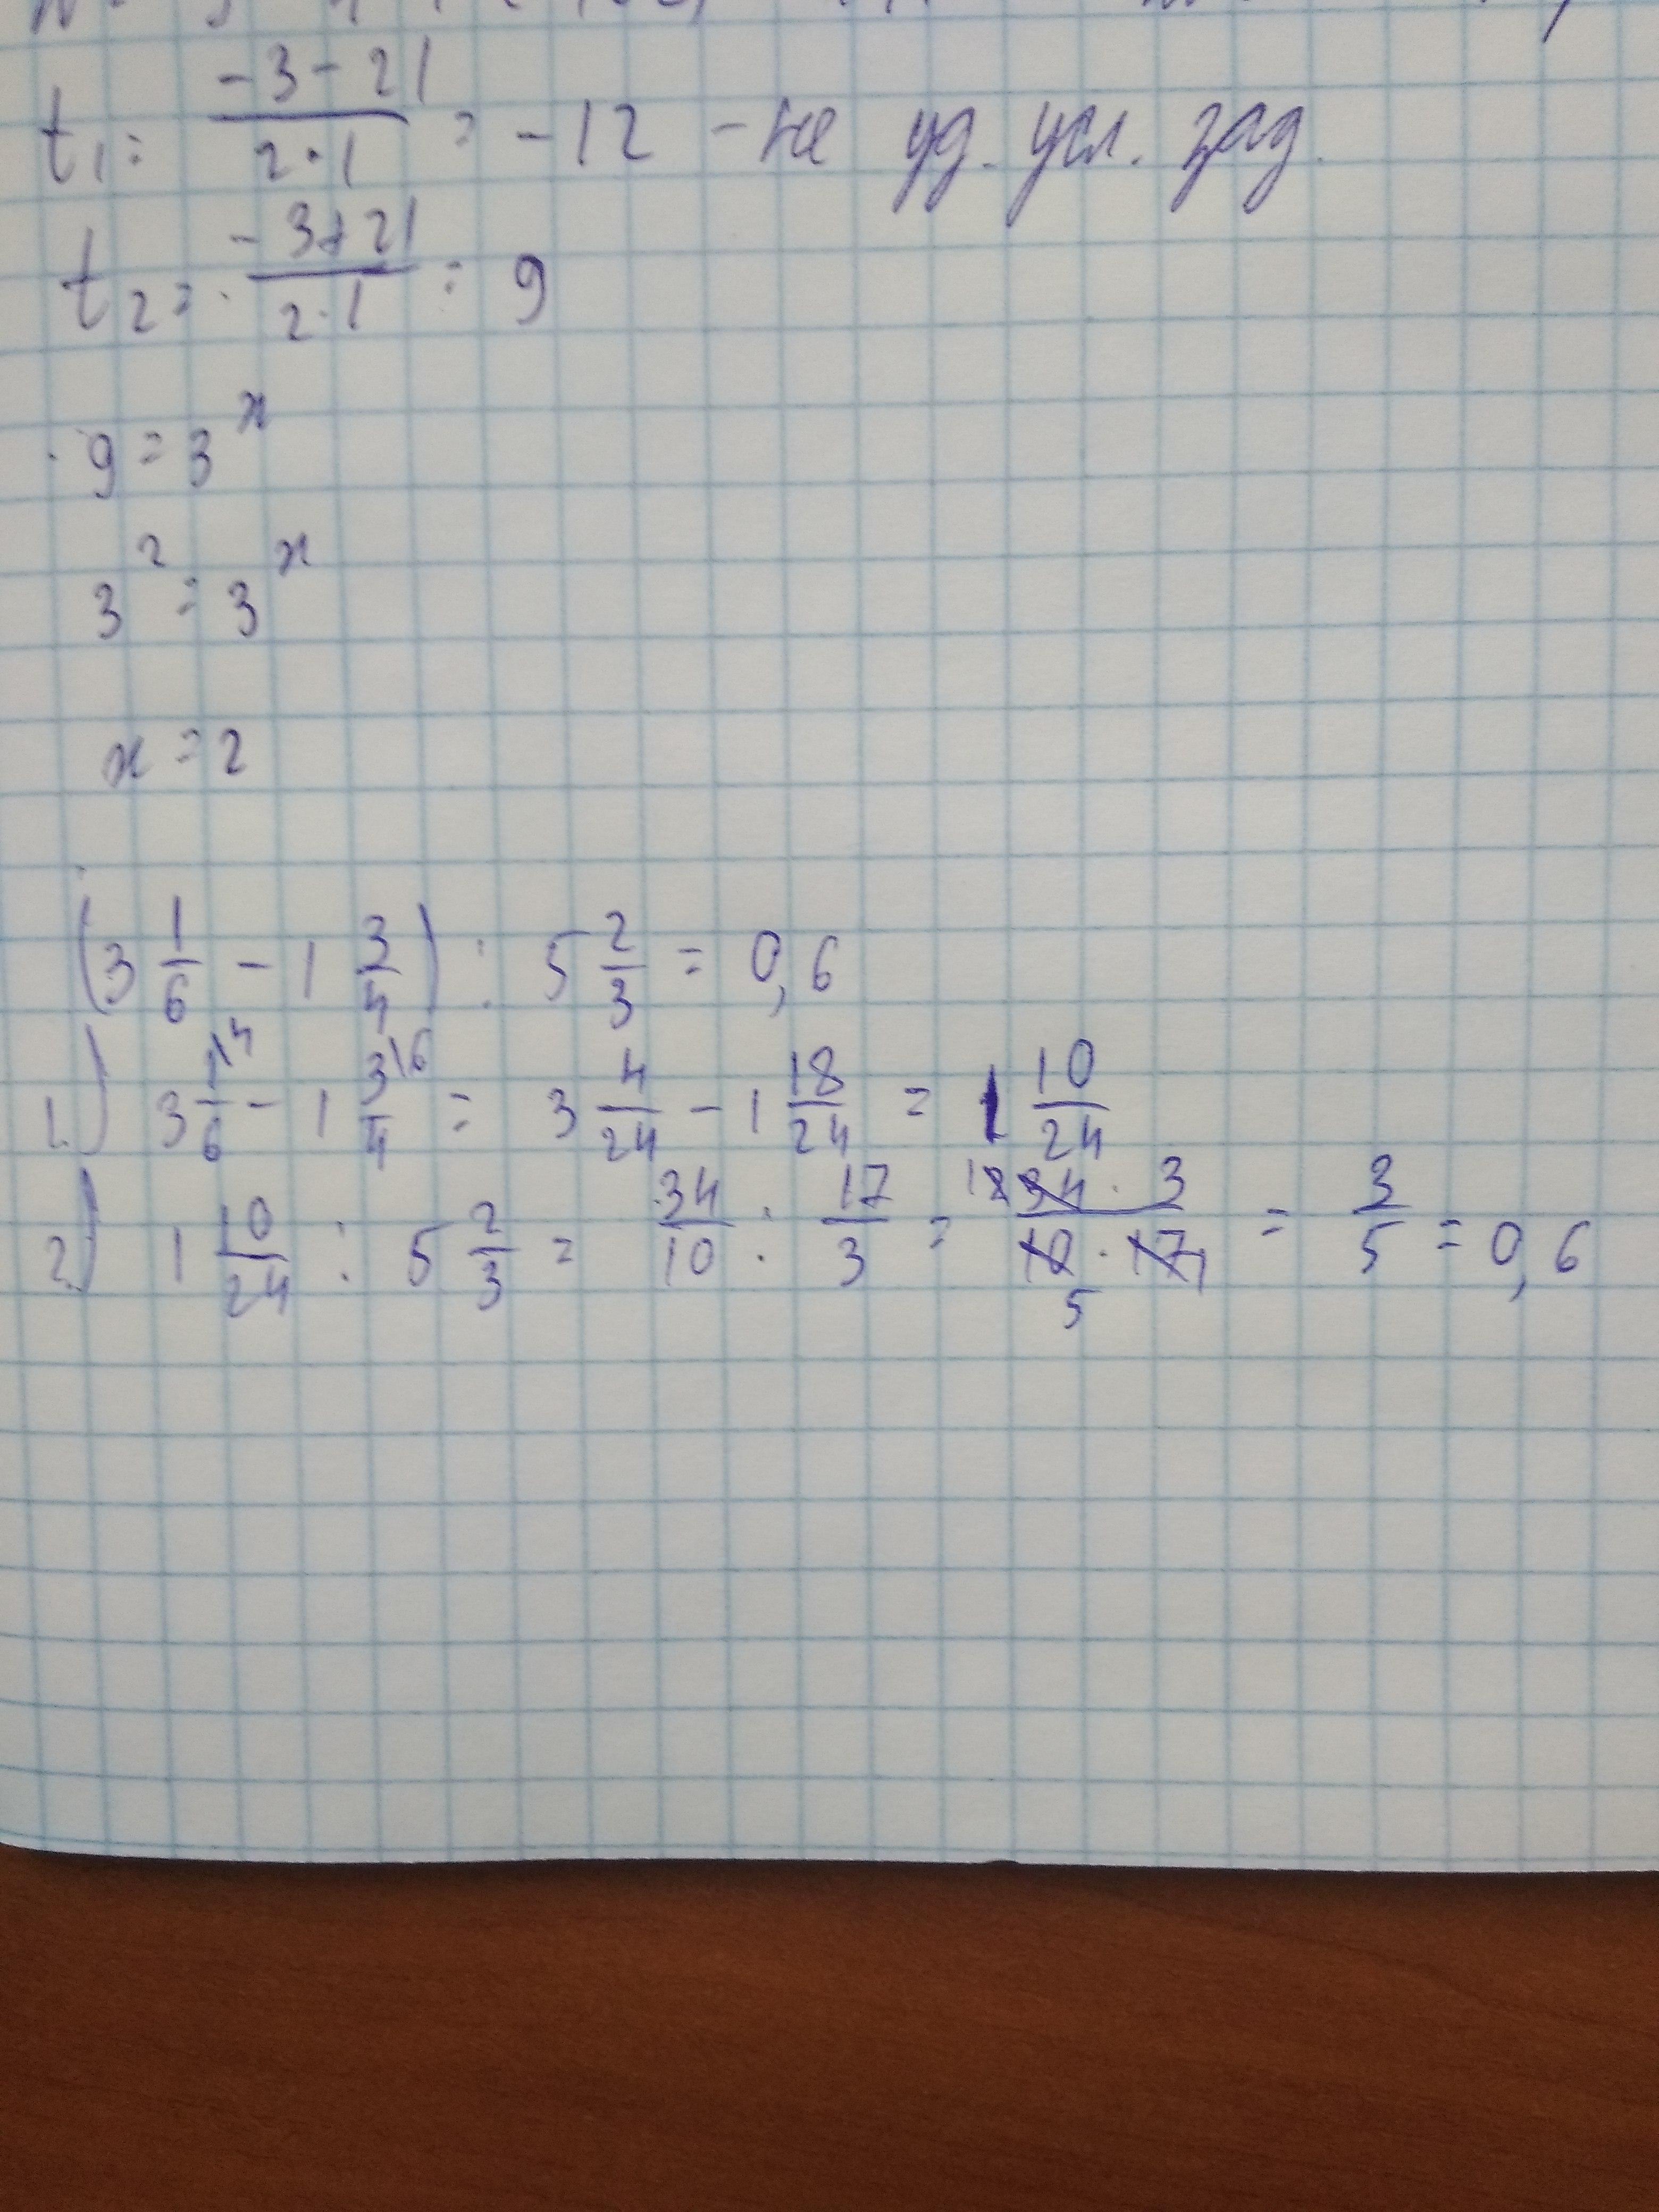 t₁ = (-3 - 21)/(2·1) = -12 - не уд. усл. зад.
t₂ = (-3+21)/(2·1) = 9
9 = 3ˣ
3² = 3ˣ
x = 2
(3 1/6 - 1 3/4) : 5 2/3 = 0,6
1.) 3 1\4/6 - 1 3\6/4 = 3 4/24 - 1 18/24 = 1 10/24
2.) 1 10/24 : 5 2/3 = 34/10 : 17/3 = 34 · 3/10 · 17 1 5 = 3/5 = 0,6